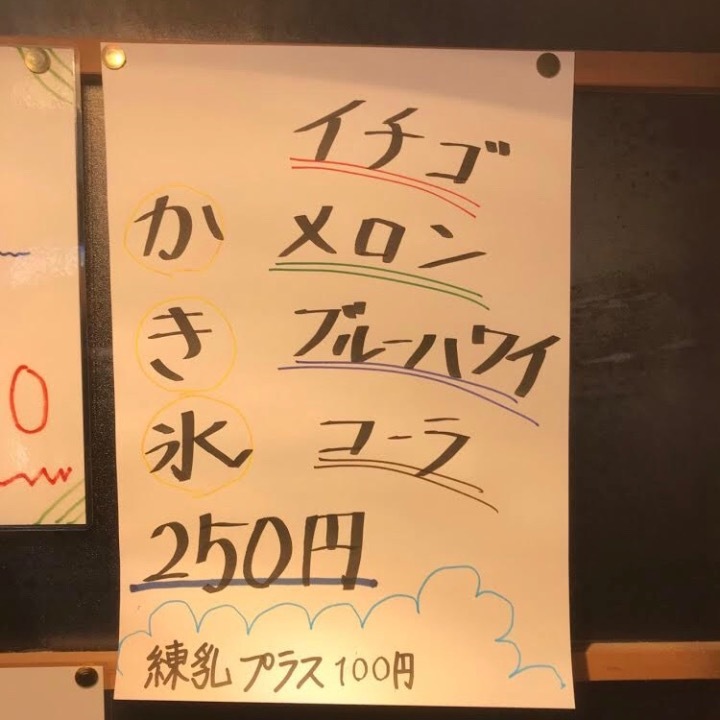 かき氷
イチゴ
メロン
ブルーハワイ
コーラ
250円
練乳プラス100円
0